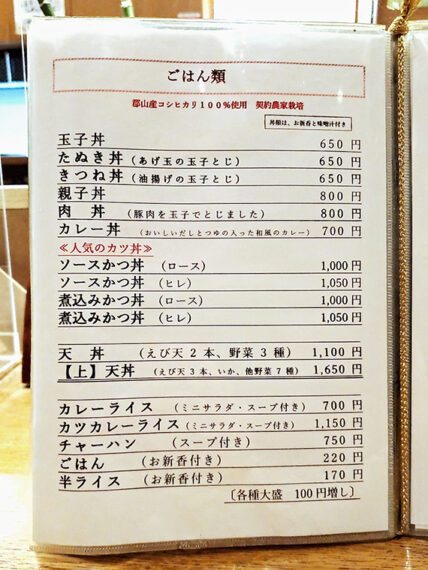 ごはん類
郡山産コシヒカリ100%使用 契約農家栽培
丼類は、お新香と味噌汁付き
玉子丼 650円
たぬき丼(あげ玉の玉子とじ) 650円
きつね丼(油揚げの玉子とじ) 650円
親子丼 800円
肉丼 (豚肉を玉子でとじました) 800円
カレー丼 (おいしいだしとつゆの入った和風のカレー) 700円
≪人気のカツ丼≫
ソースかつ丼 (ロース) 1,000円
ソースかつ丼 (ヒレ) 1,050円
煮込みかつ丼 (ロース) 1,000円
煮込みかつ丼 (ヒレ) 1,050円
天丼 (えび天2本、野菜3種) 1,100円
【上】天丼 (えび天3本、いか、他野菜7種) 1,650円
カレーライス (ミニサラダ・スープ付き) 700円
カツカレーライス(ミニサラダ・スープ付き) 1,150円
チャーハン (スープ付き) 750円
ごはん (お新香付き) 220円
半ライス (お新香付き) 170円
〔各種大盛 100円増し〕